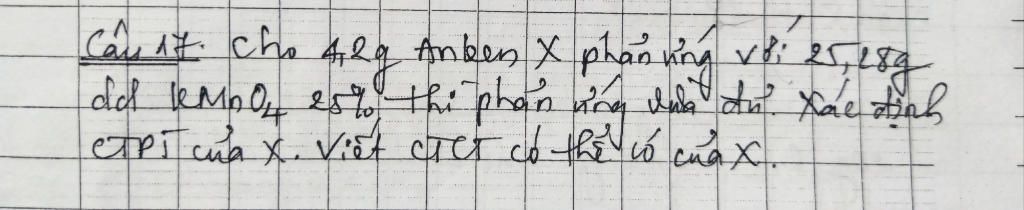 Câu 17. Cho 4,2g Anken X phản ứng với 25,28g
dd KMnO4 25% thì phản ứng vừa đủ. Xác định
CTPT của X. Viết CTCT có thể có của X.